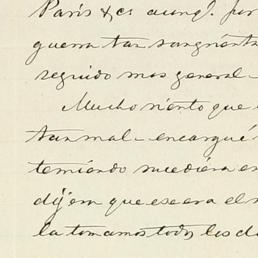 París &ca aunq.e por
guerra tan sangrienta
seguido mas general -
Mucho siento que
tan mal - encargué
temiendo sucediera
dijera que esera el
la tomamos todos los d